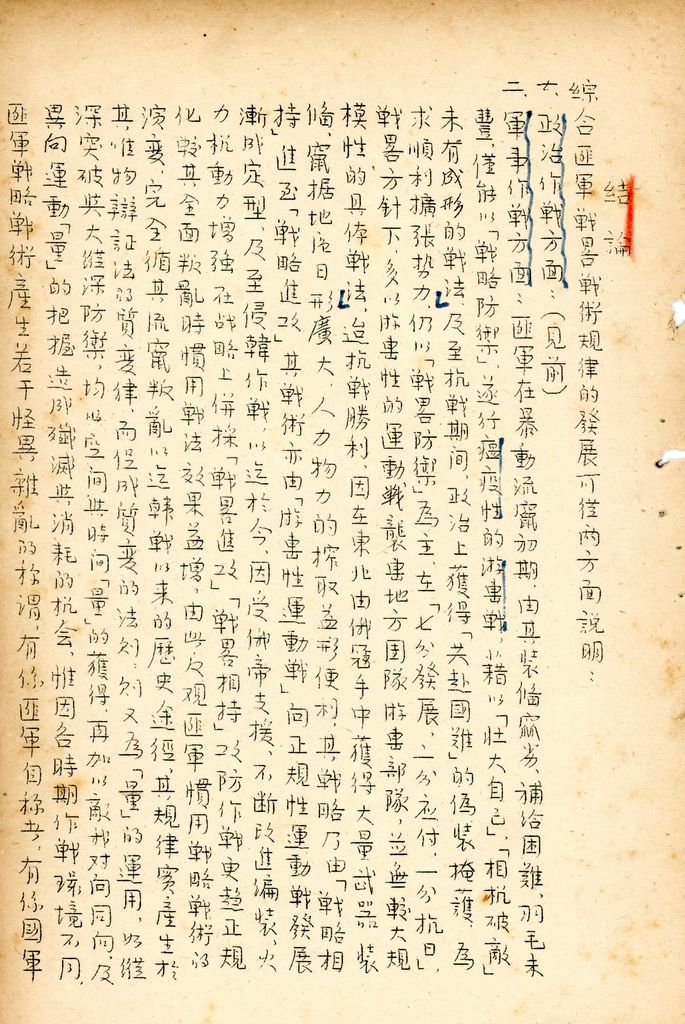 結論
綜合匪軍戰畧戰術規律的發展可從两方面說明：
一、政治作戰方面：（見前）
二、軍事作戰方面：匪軍在暴動流竄初期，由其裝備窳劣、補給困難，羽毛未
豐，僅能以「戰略防禦」，遂行瘟疫性的游击戰，藉以「壮大自己」，「相机破敵」
未有成形的戰法，及至抗戰期间，政治上獲得「共赴國难」的偽裝掩護，為
求順利擴張势力，仍以「戰畧防禦」為主，在「七分發展，二分应付，一分抗日」，
戰畧方針下，多以游击性的運動戰襲击地方团隊游击部隊，並無較大規
模性的具体戰法，迨抗戰勝利，因在東北由俄寇手中獲得大量武器裝
備，竄据地區日形廣大，人力物力的榨取益形便利，其戰略乃由「戰略相
持」進至「戰略進攻」其戰術亦由「游击性運動戰」向正規性運動戰發展
漸成定型，及至侵韓作戰，以迄於今，因受俄帝支援，不断改進編裝，火
力机動力增強在战略上併採「戰畧進攻」「戰畧相持」攻防作戰更趋正規
化較其全面叛亂時慣用戰法效果益增，由此反观匪軍慣用戰略戰術的
演变，完全循其流竄叛亂以迄韓戰以来的歷史途徑，其規律實產生於
其，唯物辯証法的質变律，而促成質变的法则，则又為「量」的運用，如縱
深突破與大縱深防禦，均以空间與時间「量」的獲得，再加以敵我对向同向，及
異向運動「量」的把握造成殲滅與消耗的机会，惟因各時期作戰環境不同，
匪軍戰略戰術產生若干怪異雜亂的称谓，有係匪軍自称者，有係國軍